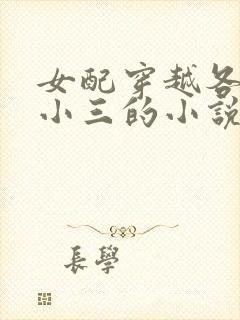 女配穿越各
小三的小說
長學